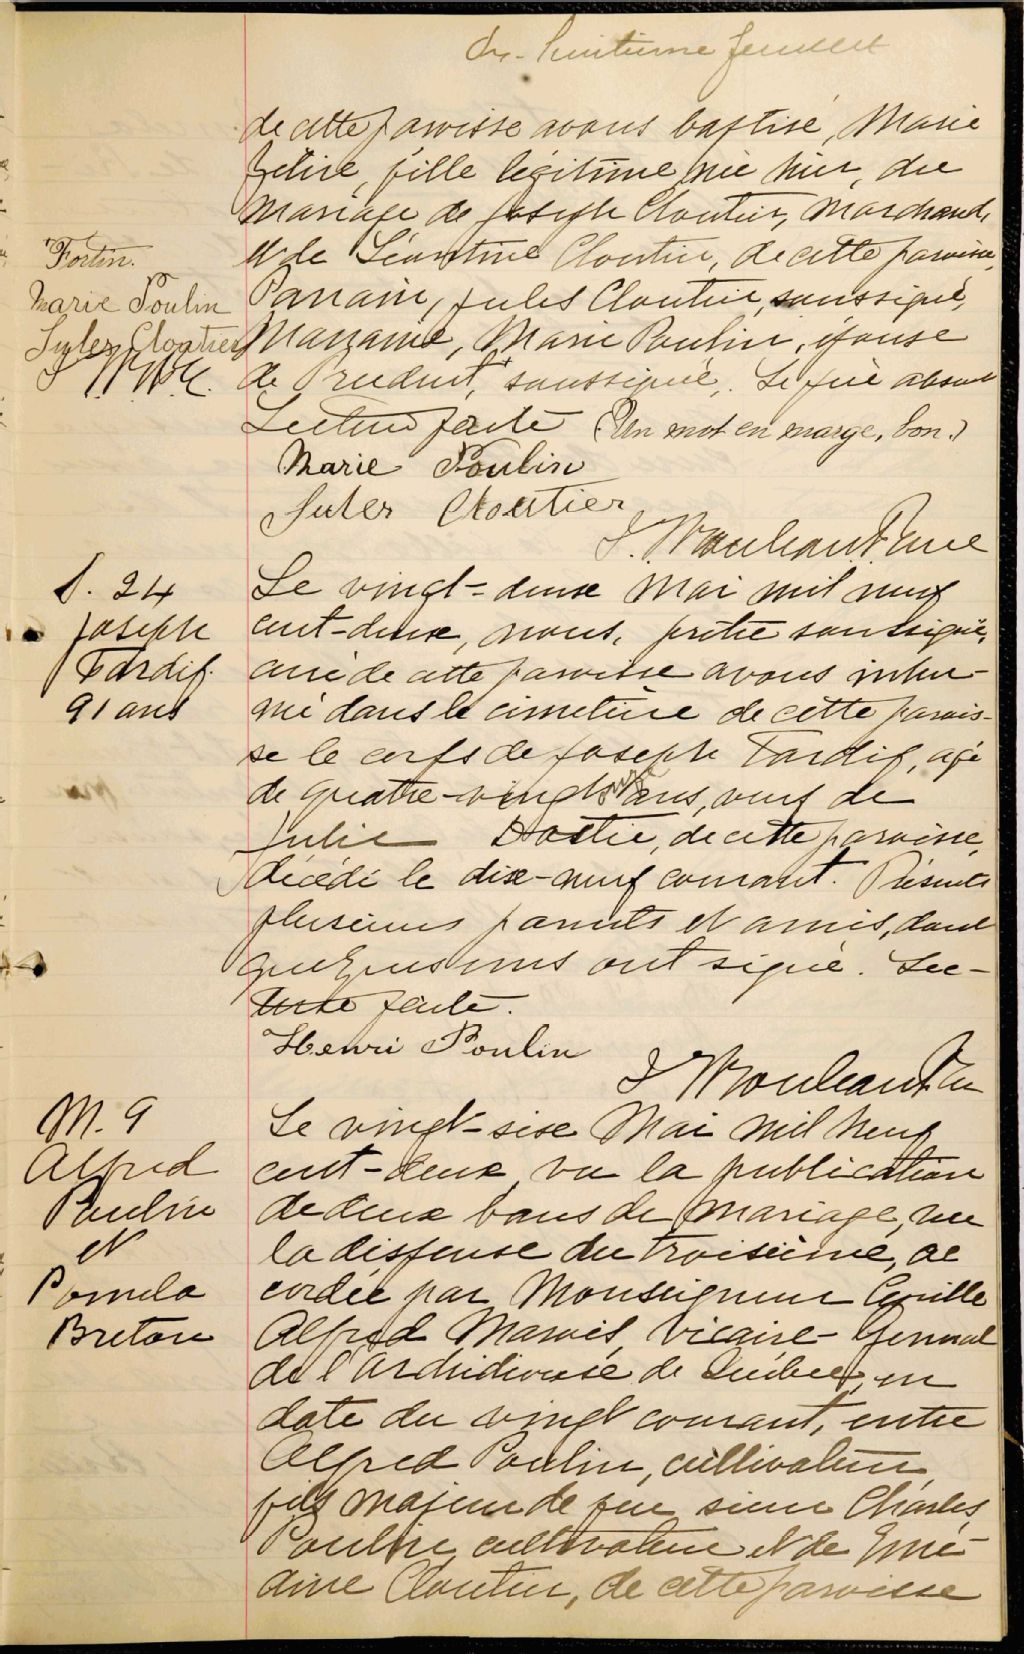 dix-huitième feuillet
de cette paroisse avons baptisé, Marie
fille légitime née hier, du
mariage de Joseph Cloutier, Marchand,
et de Léontine Cloutier, de cette paroisse,
Parrain, Jules Cloutier, soussigné,
Marraine, Marie Poulin, épouse
de Prudent, soussignée. Le père absent
Lecture faite (Un mot en marge, bon.)
Fortin.
Marie Poulin
Jules Cloutier
Marie Poulin
Jules Cloutier
S. 24
Joseph
Tardif
91 ans
Le vingt-deux Mai mil neuf
cent-deux, nous, prêtre soussigné,
curé de cette paroisse avons inhu-
mé dans le cimetière de cette parois-
se le corps de Joseph Tardif, agé
de quatre-vingt onze ans, veuf de
Julie de cette paroisse,
décédé le dix-neuf courant. Présents
plusieurs parents et amis, dont
quelques uns ont signé. Lec-
ture faite.
Henri Poulin
M. 9
Alfred
Poulin
et
Pomela
Breton
Le vingt-six Mai mil neuf
cent-deux, vu la publication
de deux bans de mariage, vu
la dispense du troisième, ac
cordée par Monseigneur Cyrille
Alfred Marois, Vicaire-Général
de l'Archidiocèse de Québec, en
date du vingt courant, entre
Alfred Poulin, cultivateur,
fils majeur de feu sieur Charles
Poulin, cultivateur et de Emé-
dine Cloutier, de cette paroisse